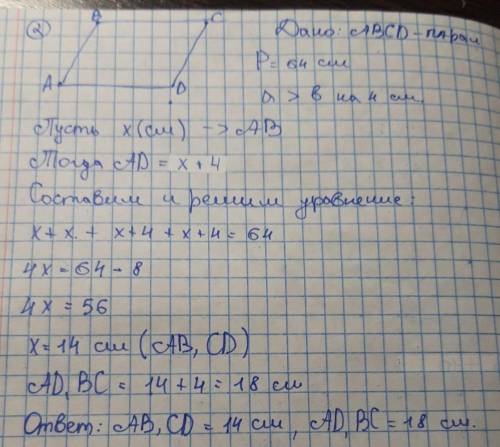 ② B C Дано: ABCD - парал
P = 64 см
A D a > b на 4 см.
Пусть x (см) -> AB
Тогда AD = x + 4
Составим и решим уравнение:
x + x + x+4 + x+4 = 64
4x = 64 - 8
4x = 56
x = 14 см (AB, CD)
AD, BC = 14 + 4 = 18 см
Ответ: AB, CD = 14 см, AD, BC = 18 см.